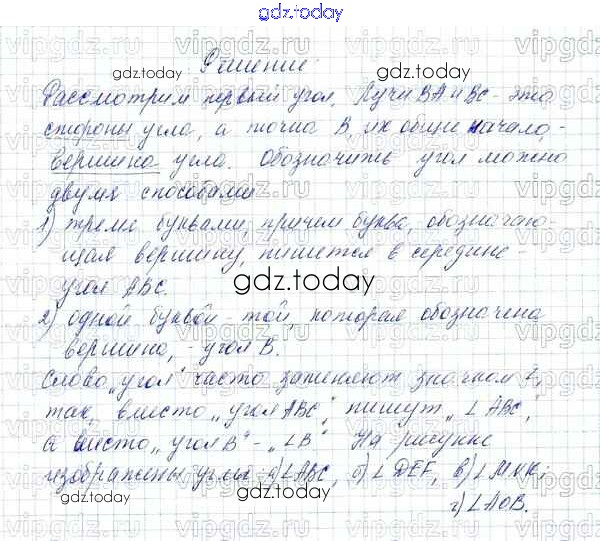 gdz.today
Решение:
gdz.today gdz.today
Рассмотрим первый угол. Лучи BA и BC - это
стороны угла, а точка B, их общее начало, -
Вершина угла. Обозначить угол можно
двумя способами
1) тремя буквами, причем буква, обозначаю-
щая вершину, пишется в середине -
угол ABC.
gdz.today
2) одной буквой - той, которая обозначена
вершина, - угол B.
Слово "угол" часто заменяют значком ∠,
так, вместо "угол ABC" пишут "∠ ABC",
а вместо "угол B" - "∠B" На рисунке
изображены углы: а) ∠ABC, б) ∠ DEF, в) ∠ MNK;
г) ∠AOB.
gdz.today gdz.today